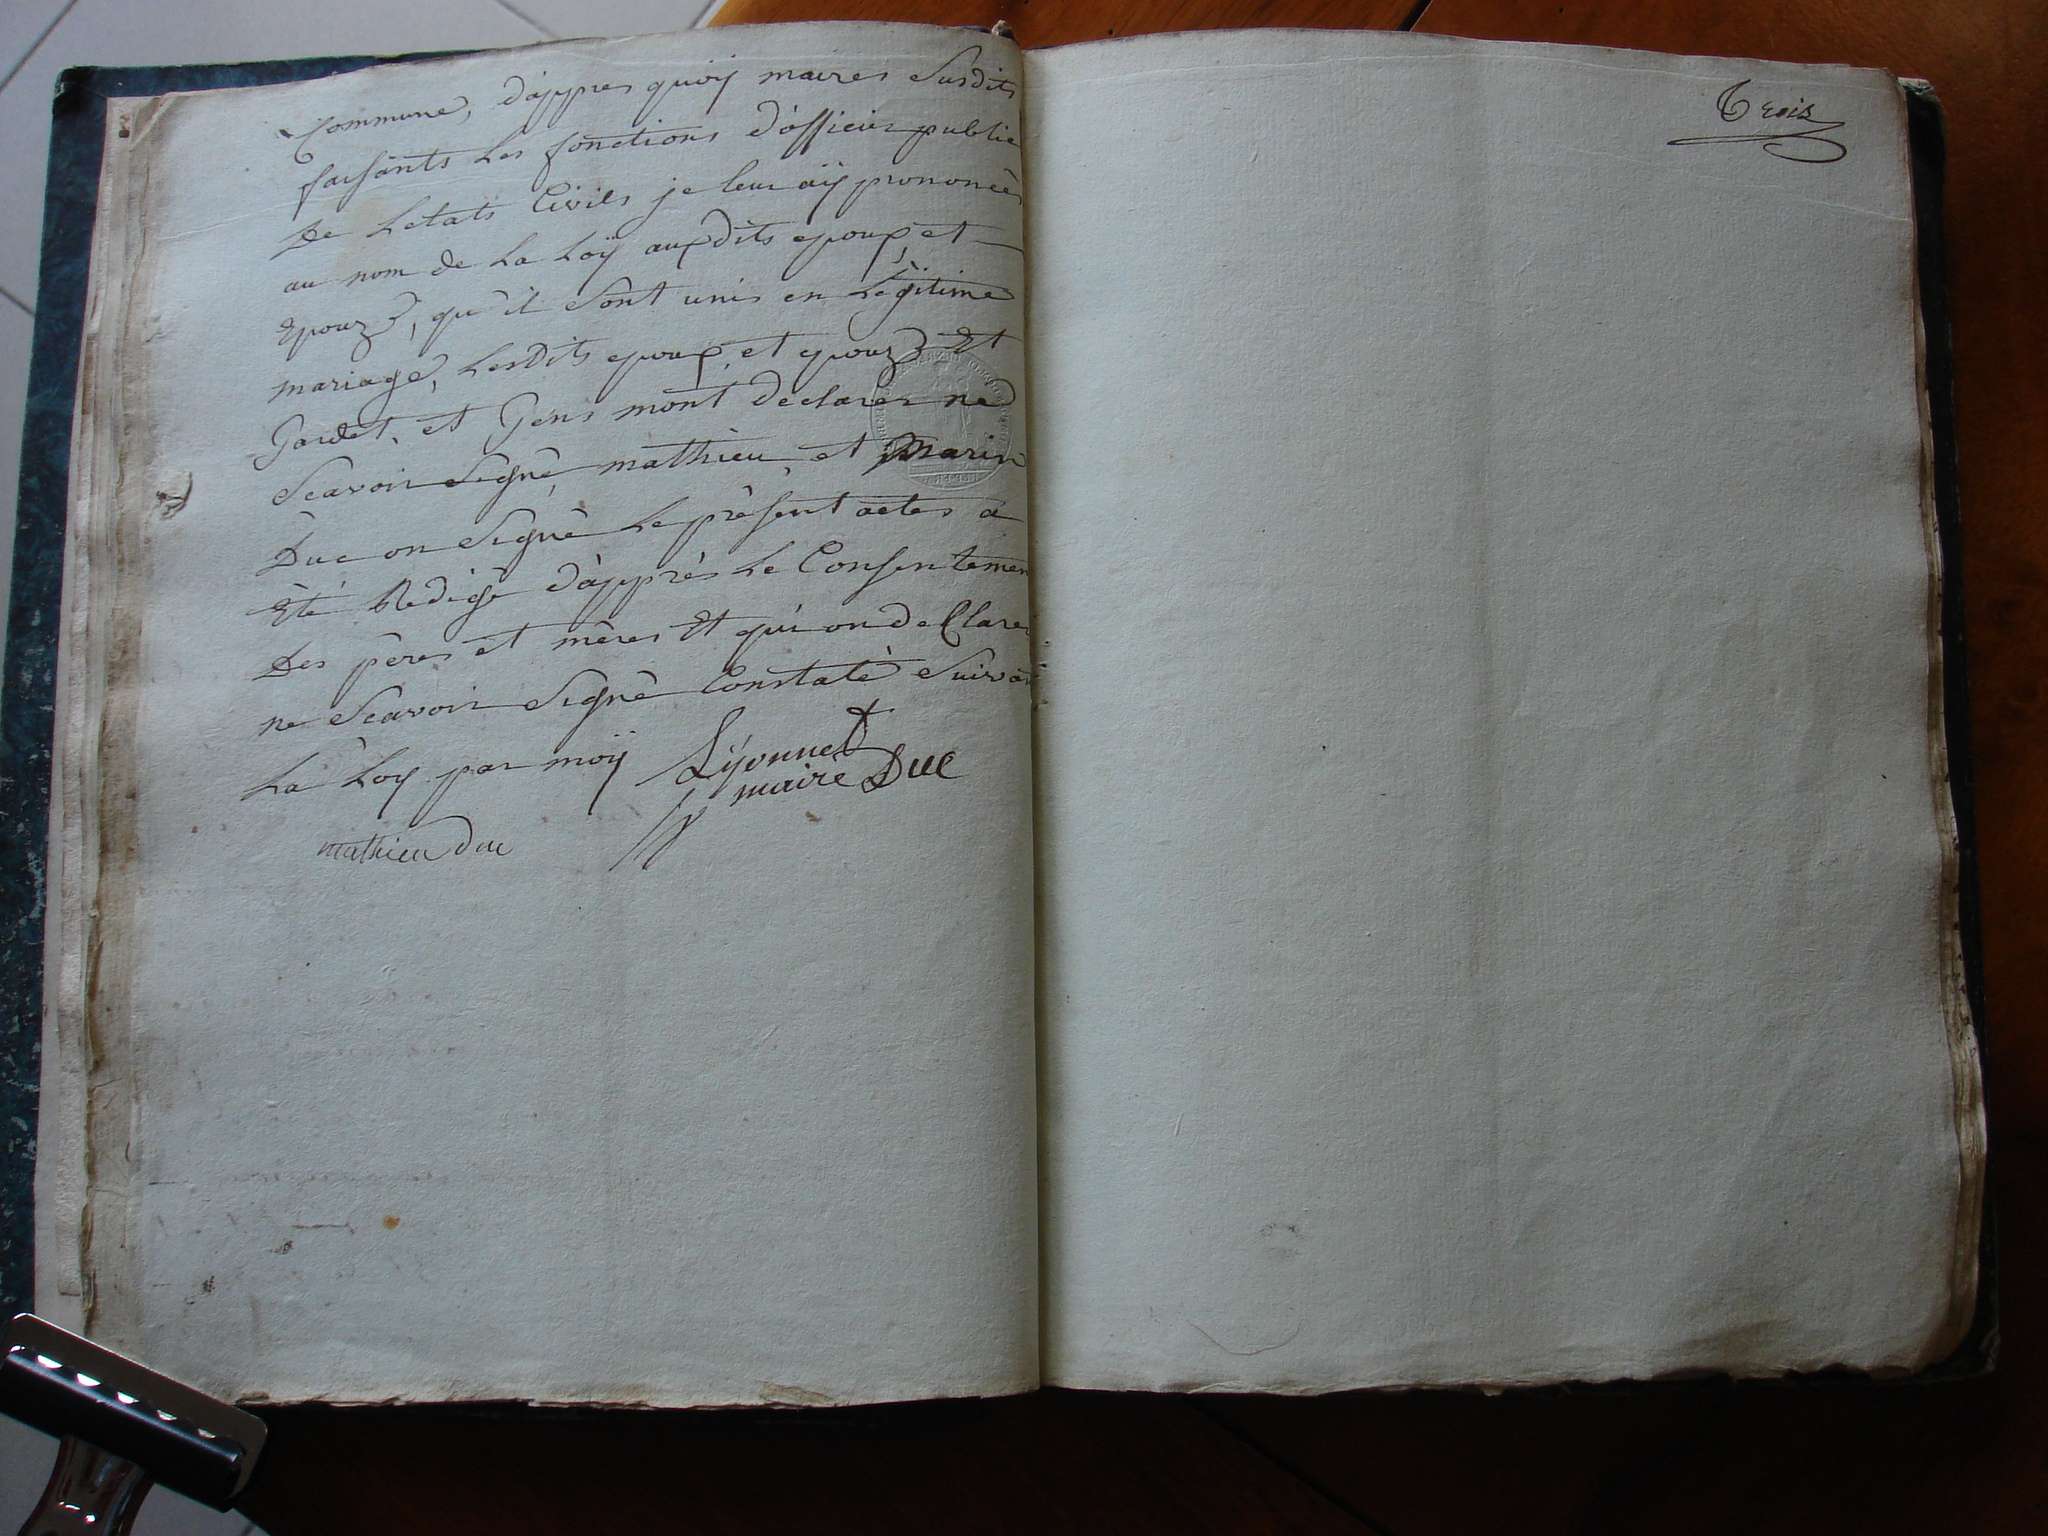 Commune, dàppres quoÿ maires Susdits
faisants Les fonctions d'officier public
De Letats Civils je leur aÿ prononcès
au nom de La Loÿ auxdits epoux, et
Epouzé, qu'il Sont unis en Légitime
mariage, Lesdits epoux, et epouzé Et
Gardet, et Gens mont declarer ne
Scavoir Signè, mathieu, et Marin
Duc on Signè Le présent actes a
Èté Redigè d'apprés Le Consentemen
Des pères et mères Et qui on de Clarer
ne Scavoir Signè Constatè Suivan
La Loy par moÿ Lÿonnet
maire Duc
mathieu duc
Trois